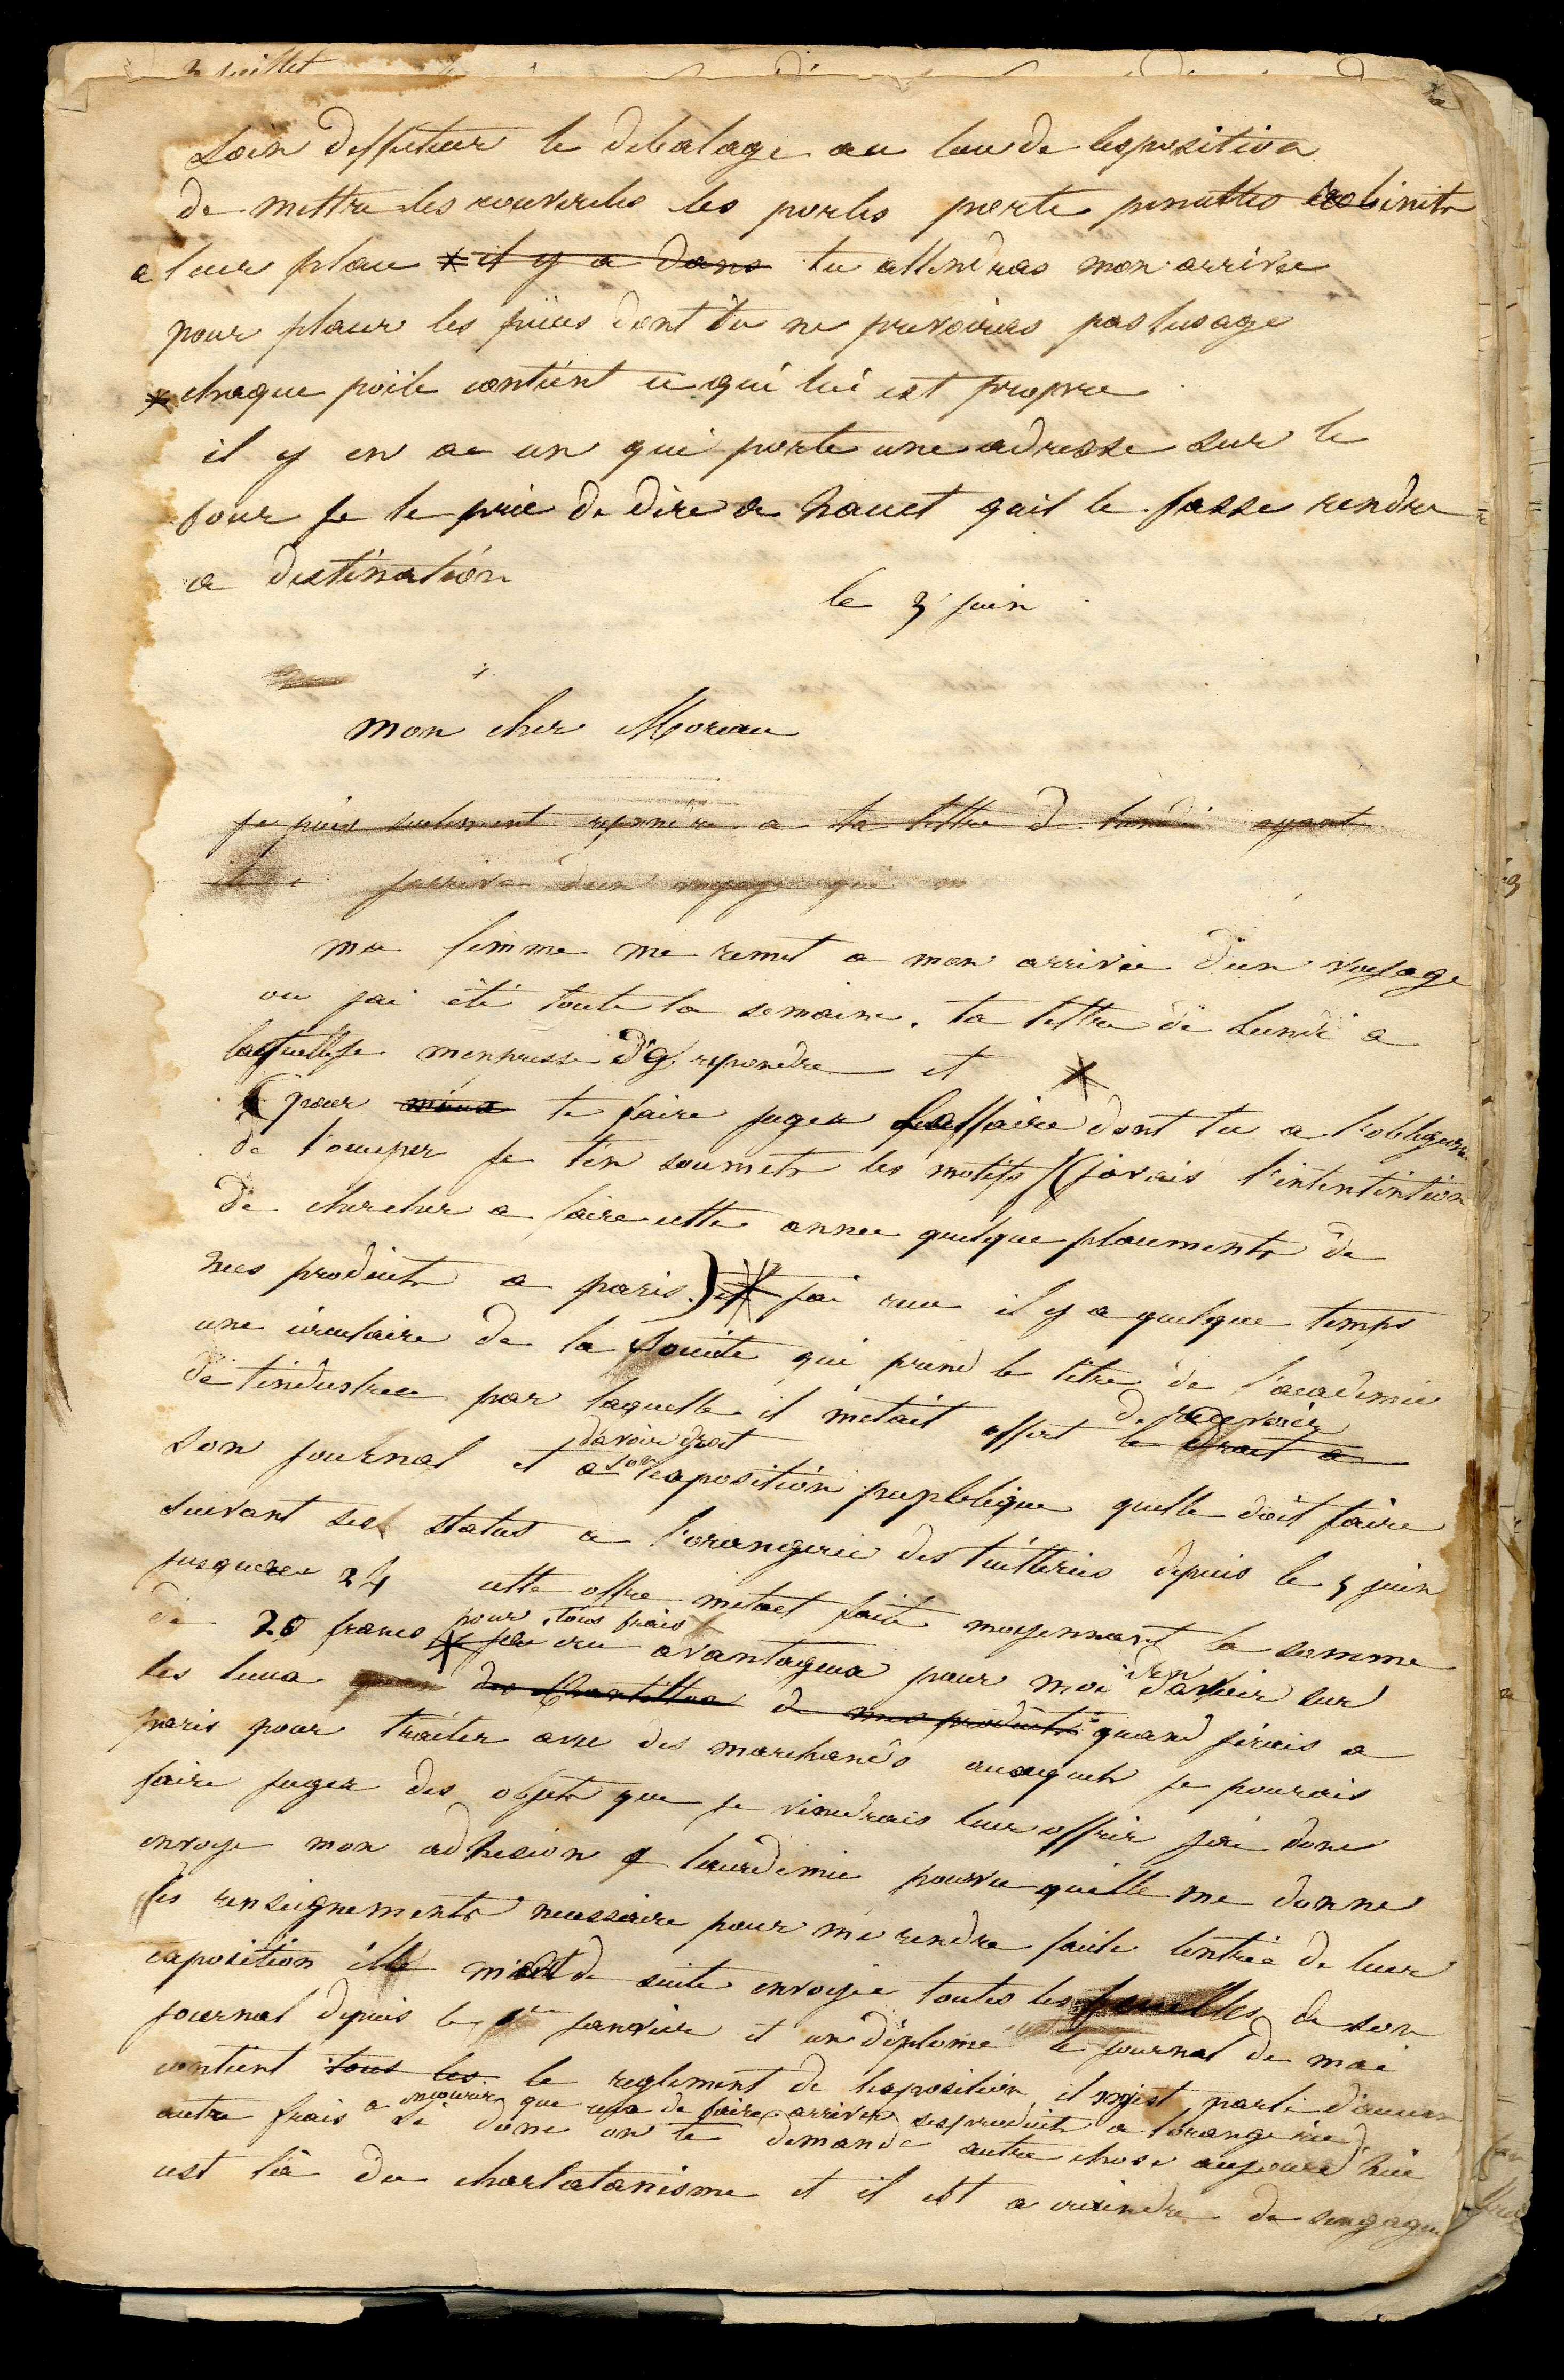 3 juillet
Soin deffectuer le debalage au lieu de lexposition
de mettre les couvercles les portes porte pincettes robinets
a leur place * il y a dans tu attendras mon arrivee
pour placer les pieces dont tu ne prevoieras pas lusage
* chaque poile contient ce qui lui est propre
il y en a un qui porte une adresse sur le
four je te prie de dire a hauet quil le fasse rendre
a destination
le 3 juin
mon cher Moreau
je puis seulement repondre a ta lettre de lundi ayant
jarrive dun voyage qui m
ma femme me remet a mon arrivée d'un voyage
ou jai été toute la semaine. ta lettre de Lundi a
laquelle je menpresse d'y repondre et *
(pour mieux te faire juger laffaire dont tu a l'obligence
de toccuper je ten soumets les motifs)(javais l'intentintion
de chercher a faire cette annee quelque placements de
mes produits a paris.) * jai recu il y a quelque temps
une circulaire de la Societe qui prend le titre de l'academie
de lindustrie par laquelle il m'etait offert le droit a
de recevoir
son journal et a son exposition puplblique quelle doit faire
davoir droit
suivant ses status a l'orangerie des tuilleries depuis le 5 juin
jusquau 24 cette offre m'etaet faite moyennant la somme
de 20 francs * jai cru avantageux pour moi d'avoir sur
pour tous frais
d'en
les lieux des echantillon de mes produits quand jirais a
paris pour traiter avec des marchands auxquels je pourais
faire juger des objets que je viendrais leur offrir jai donc
envoye mon adhesion a lacademie pourvu quelle me donne
les renseignements necessaire pour me rendre facile lentrée de leur
exposition elle m'a de suite envoyée toutes les feuilles de son
journal depuis le 1er janvier et un diplome le journal de mai
contient tous les le reglement de lexposition il n'y est parlé d'aucun
autre frais a encourir que ceux de faire arriver ses produits a lorangerie
si donc on te demande autre chose aujourd'hui
cest là du charlatanisme et il est a craindre de sengager